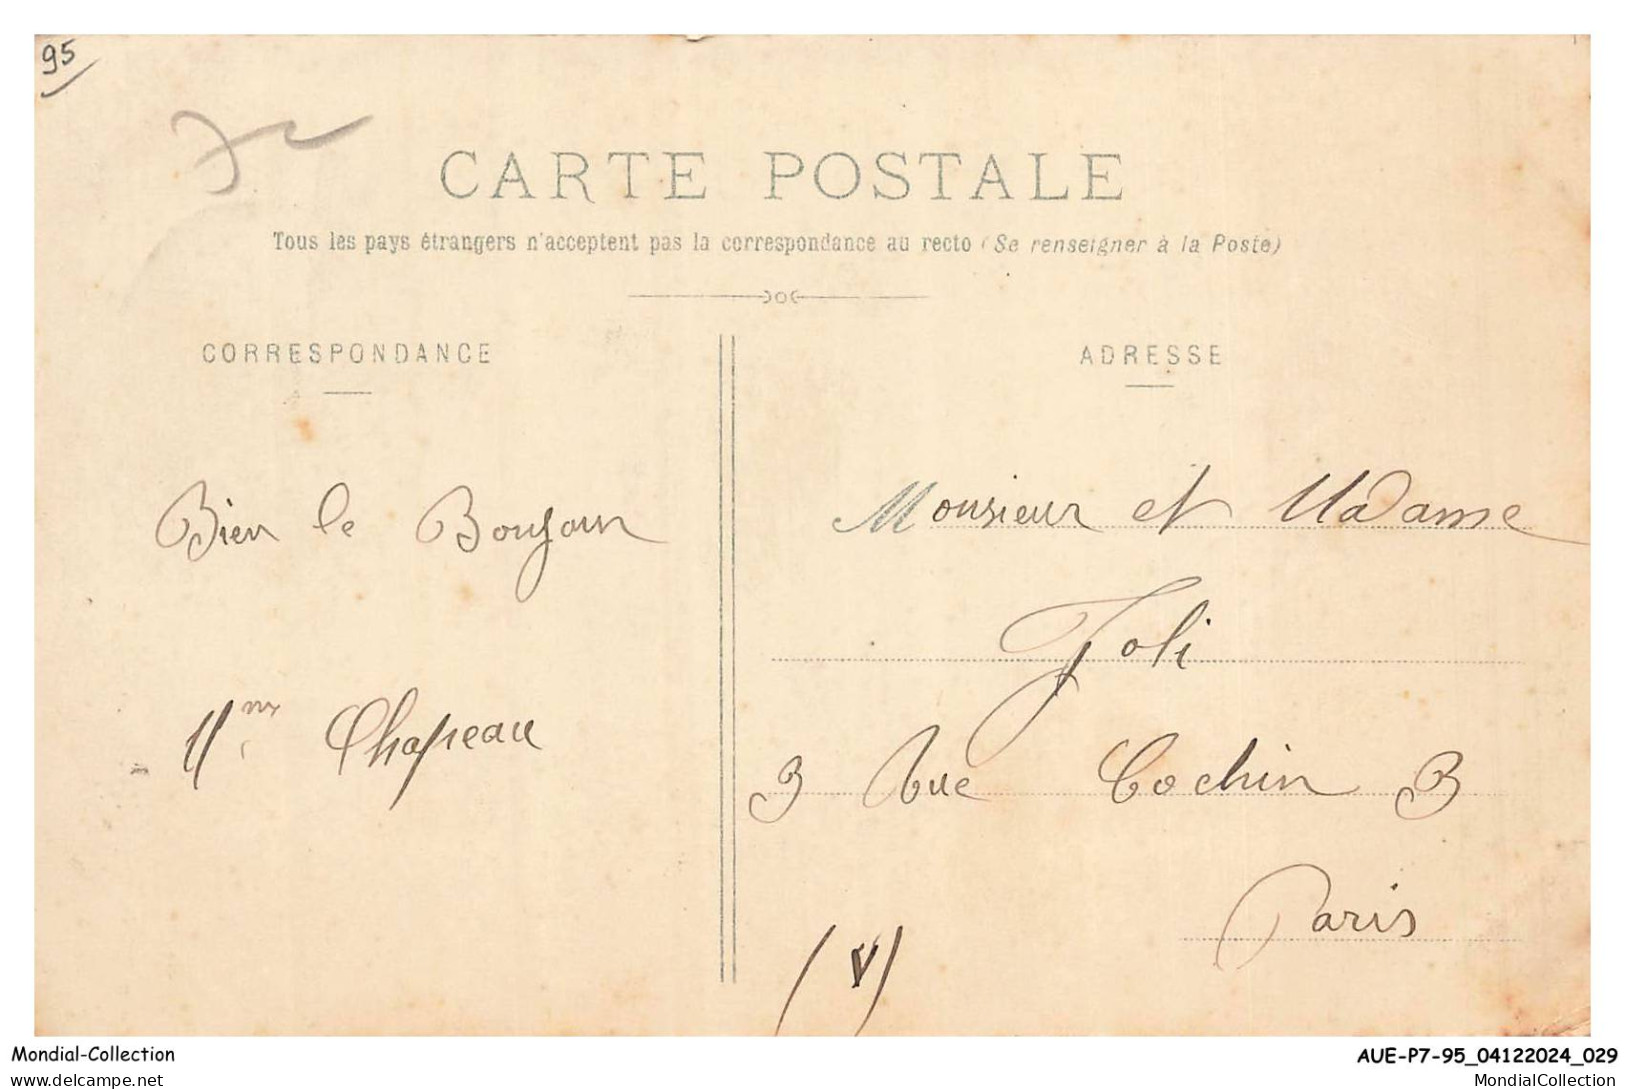 95
CARTE POSTALE
Tous les pays étrangers n'acceptent pas la correspondance au recto (Se renseigner à la Poste)
CORRESPONDANCE
Bien le Bonjour
Mme Chapeau
ADRESSE
Monsieur et Madame
Joli
3 Rue Cochin 3
Paris
(V)
Mondial-Collection
delcampe.net
AUE-P7-95_04122024_029
MondialCollection